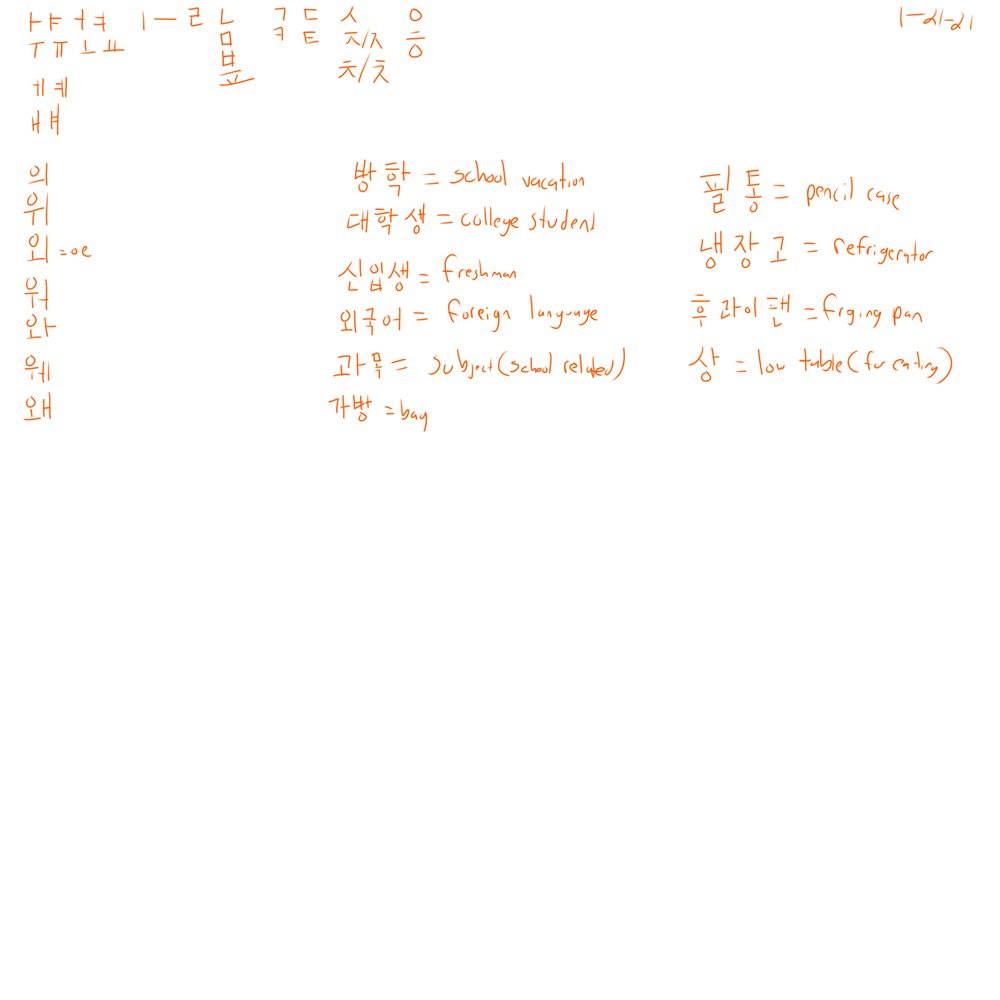 ㅏㅑㅓㅕ ㅣㅡㄹㄴ ㄱㄷ ㅅ ㅇ 1-21-21
ㅜㅠㅗㅛ ㅁ ㅋㅌ ㅈ/ㅈ ㅎ
ㅂ
ㅍ ㅊ/ㅊ
ㅔㅖ
ㅐㅒ
의
위
외 =oe
워
와
웨
왜
방학 = school vacation
대학생 = college student
신입생 = freshman
외국어 = foreign language
과목 = subject (school related)
가방 = bag
필통 = pencil case
냉장고 = refrigerator
후라이팬 = frying pan
상 = low table (for eating)